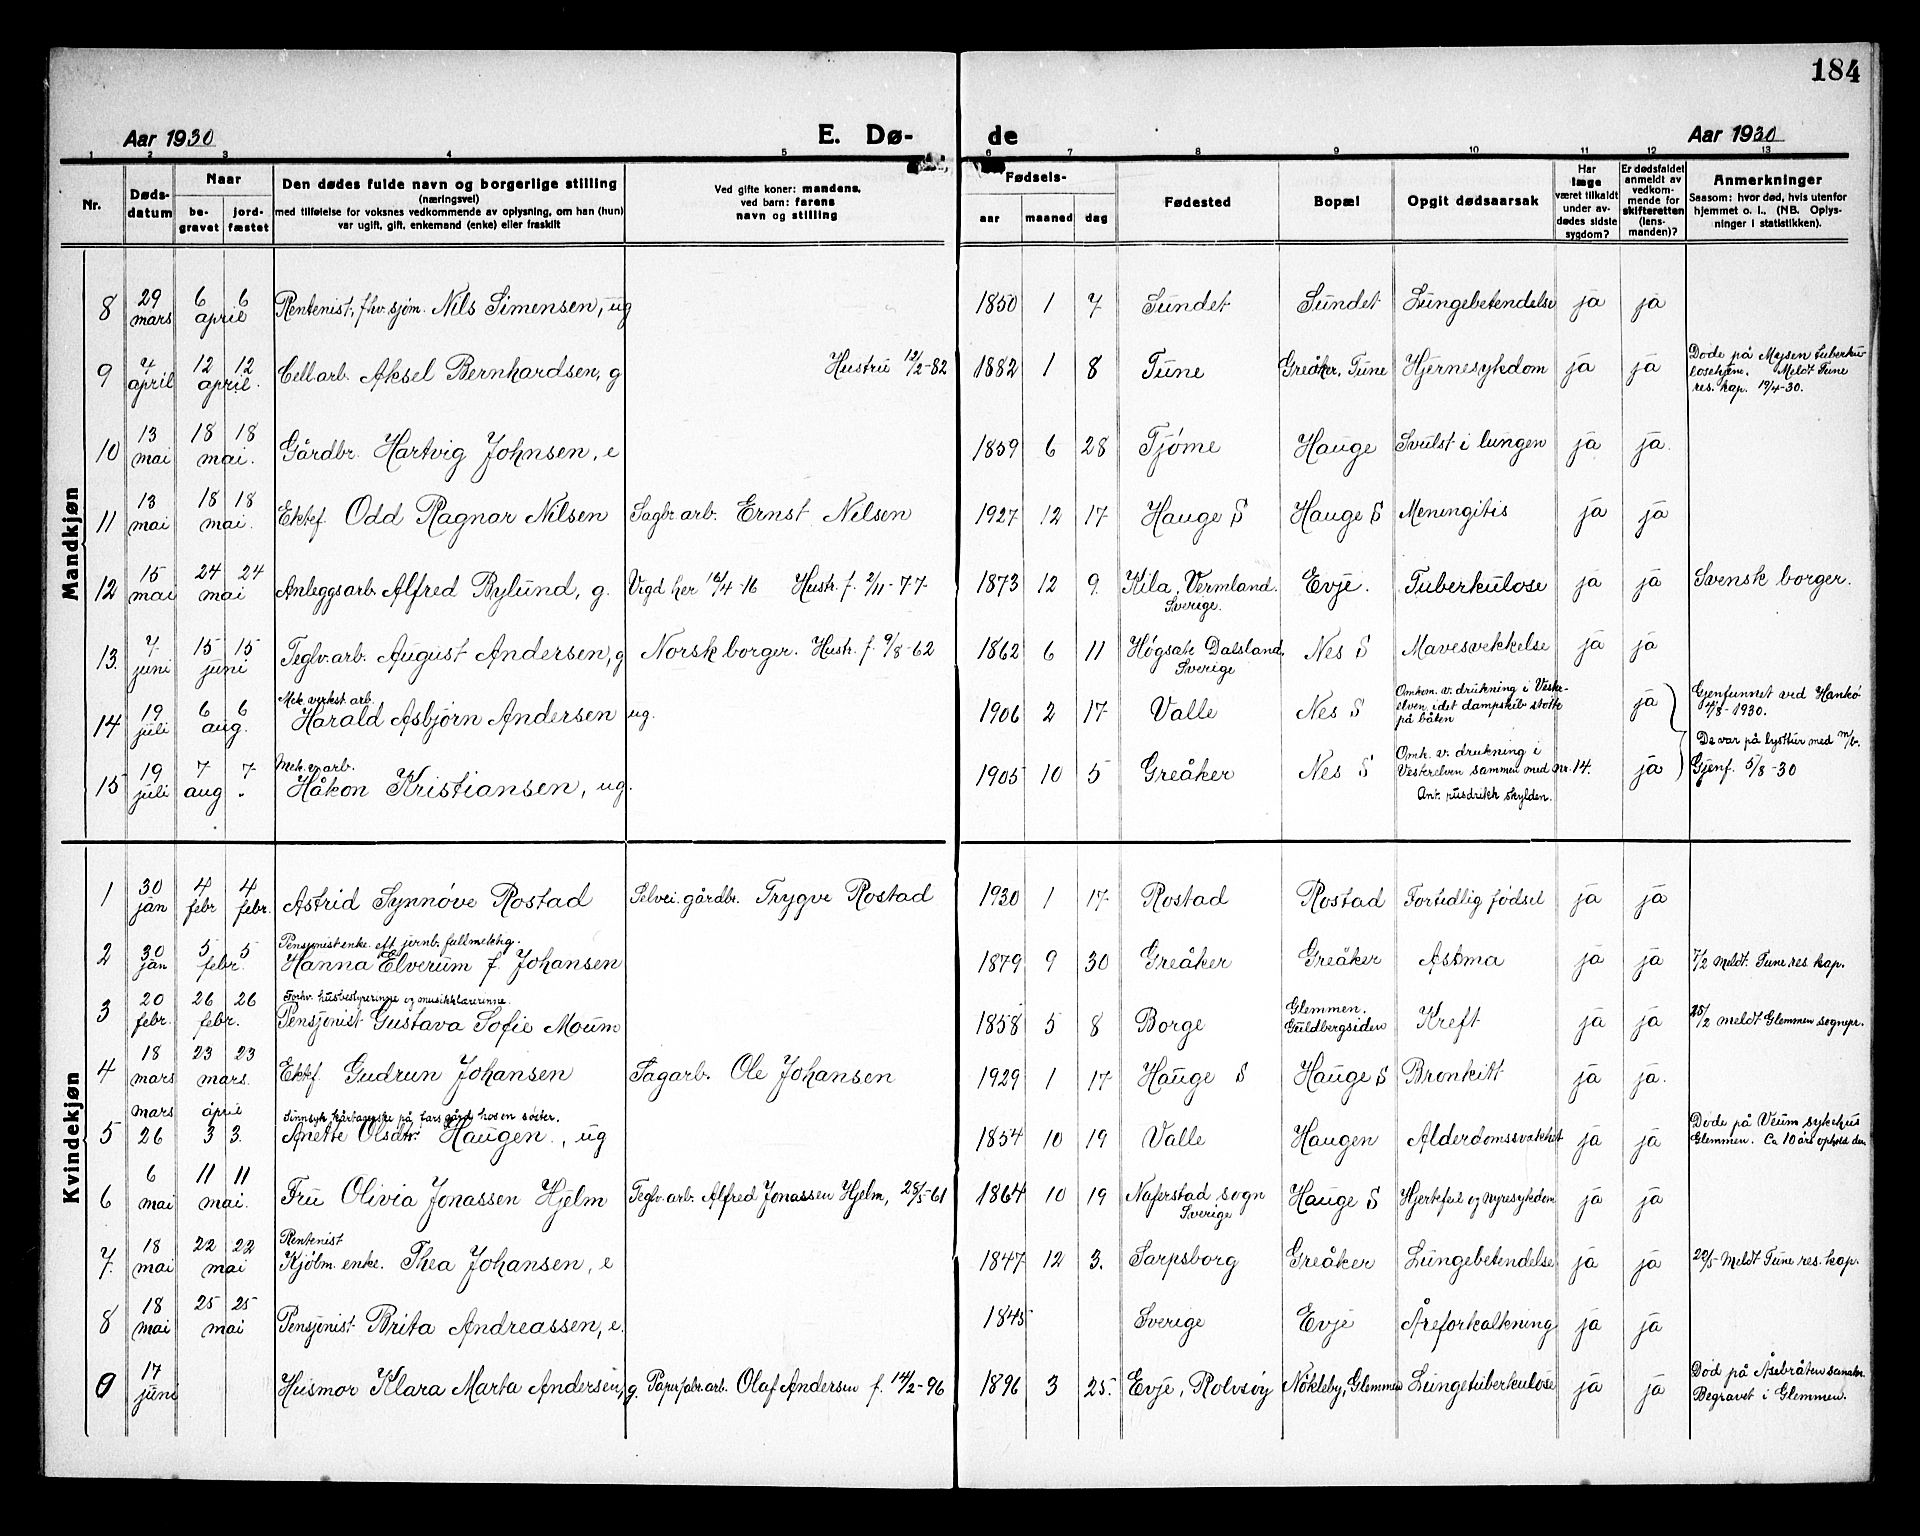 184
Aar 1930 E. Dø- de Aar 1930
1 2 3 4 5 6 7 8 9 10 11 12 13
Nr. Døds-datum Naar be-gravet jord-fæstet Den dødes fulde navn og borgerlige stilling (næringsvei) med tilføielse for voksnes vedkommende av oplysning, om han (hun) var ugift, gift, enkemand (enke) eller fraskilt Ved gifte koner: mandens, ved barn: farens navn og stilling Fødsels- aar maaned dag Fødested Bopæl Opgit dødsaarsak Har læge været tilkaldt under av-dødes sidste sygdom? Er dødsfaldet anmeldt av vedkom-mende for skifteretten (lens-manden)? Anmerkninger Saasom: hvor død, hvis utenfor hjemmet o. l., (NB. Oplys-ninger i statistikken).
Mandkjøn
8 29 mars 6 6 april Rentenist, fhv. sjøm. Nils Simensen, ug 1850 1 7 Sundet Sundet Lungebetendelse ja ja
9 7 april 12 12 april. Cell.arb. Aksel Bernhardsen, g Hustru 12/2-82 1882 1 8 Tune Greåker, Tune Hjernesykdom ja ja Døde på Mysen tuberku-losehjem. Meldt Tune res. kap. 19/4-30.
10 13 mai 18 18 mai. Gårdbr. Hartvig Johnsen, e 1859 6 28 Tjøme Hauge Svulst i lungen ja ja.
11 13 mai 18 18 mai. Ektef. Odd Ragnar Nilsen Sagbr. arb. Ernst Nilsen 1927 12 17 Hauge S Hauge S Meningitis ja ja
12 15 mai 24 24 mai Anleggsarb. Alfred Bylund, g. Vigd her 16/4-16 Hustr. f. 2/11-77 1873 12 9. Kila, Vermland. Sverige. Evje. Tuberkulose ja ja Svensk borger.
13. 7. juni 15 15 juni Teglv. arb. August Andersen, g Norsk borger. Hustr. f. 9/8-62 1862 6 11 Høgsäte Dalsland, Sverige Nes S Mavesvekkelse ja ja
14 19 juli 6 6 aug. Mek. verkst. arb. Harald Asbjørn Andersen ug. 1906 2 17 Valle Nes S Omkom. v. drukning i Vester-elven idet dampskib støtte på båten ja Gjenfunnet ved Hankø 4/8-1930.
De var på lysttur med m/b.
15 19 juli 7 7 aug. Mek. v. arb. Håkon Kristiansen, ug. 1905 10 5 Greåker Nes S Omk. v. drukning i Vesterelven sammen med nr. 14. Ant. rusdrikk skylden. ja Gjenf. 5/8-30
Kvindekjøn
1 30 jan 4 4 febr febr. Astrid Synnøve Rostad Selvei. gårdbr. Trygve Rostad 1930 1 17 Rostad Rostad Fortidlig fødsel ja ja
2 30 jan 5 5 febr. Pensjonist enke eft jernb. fullmektig. Hanna Elverum f. Johansen 1879 9 30 Greåker Greåker Astma ja ja 7/2 Meldt Tune res. kap.
3 20 febr. 26 26 febr. Forhv. husbestyrerinne og musikklærerinne. Pensjonist Gustava Sofie Moum 1858 5 8 Borge Glemmen. Guldbergsiden Kreft ja ja 25/2 meldt Glemmen sognepr.
4 18 mars 23 23 mars. Ektef Gudrun Johansen Sagarb. Ole Johansen 1929 1 17 Hauge S Hauge S Bronkitt ja ja.
5 mars 26 april 3 3. Sinnsyk på fars gård hos en søster. Anette Olsdtr. Haugen., ug 1854 10 19 Valle Haugen Alderdomssvakhet ja ja Døde på Veum sykehus Glemmen. Ca 10 års ophold der
6 6 mai 11 11 mai. Fru Olivia Jonassen Hjelm Teglv. arb. Alfred Jonassen Hjelm, 28/5-61 1864 10 19 Naverstad sogn Sverige Hauge S Hjertefeil og nyresykdom ja ja
7. 18 mai 22 22 mai Rentenist Kjøbm. enke. Thea Johansen, e 1847 12 3. Sarpsborg Greåker Lungebetendelse ja ja 20/5 Meldt Tune res. kap.
8 18 mai 25 25 mai Pensjonist Brita Andreassen, e. 1845 Sverige Evje Åreforkalkning ja ja
9 17 juni Husmor Klara Marta Andersen, g. Papirfabr. arb. Olaf Andersen f. 14/2-96 1896 3 25. Evje, Rolvsøy Nøkleby, Glemmen Lungetuberkulose ja ja Død på Åsebråten sanator. Begravet i Glemmen.